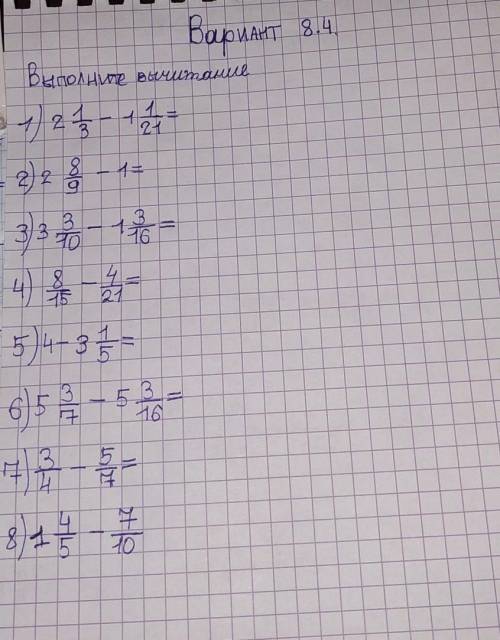 Вариант 8.4.
Выполните вычитание
1) 2 1/3 - 1 1/21 =
2) 2 8/9 - 1 =
3) 3 3/10 - 1 3/16 =
4) 8/15 - 4/21 =
5) 4 - 3 1/5 =
6) 5 3/7 - 5 3/16 =
7) 3/4 - 5/7 =
8) 1 4/5 - 7/10